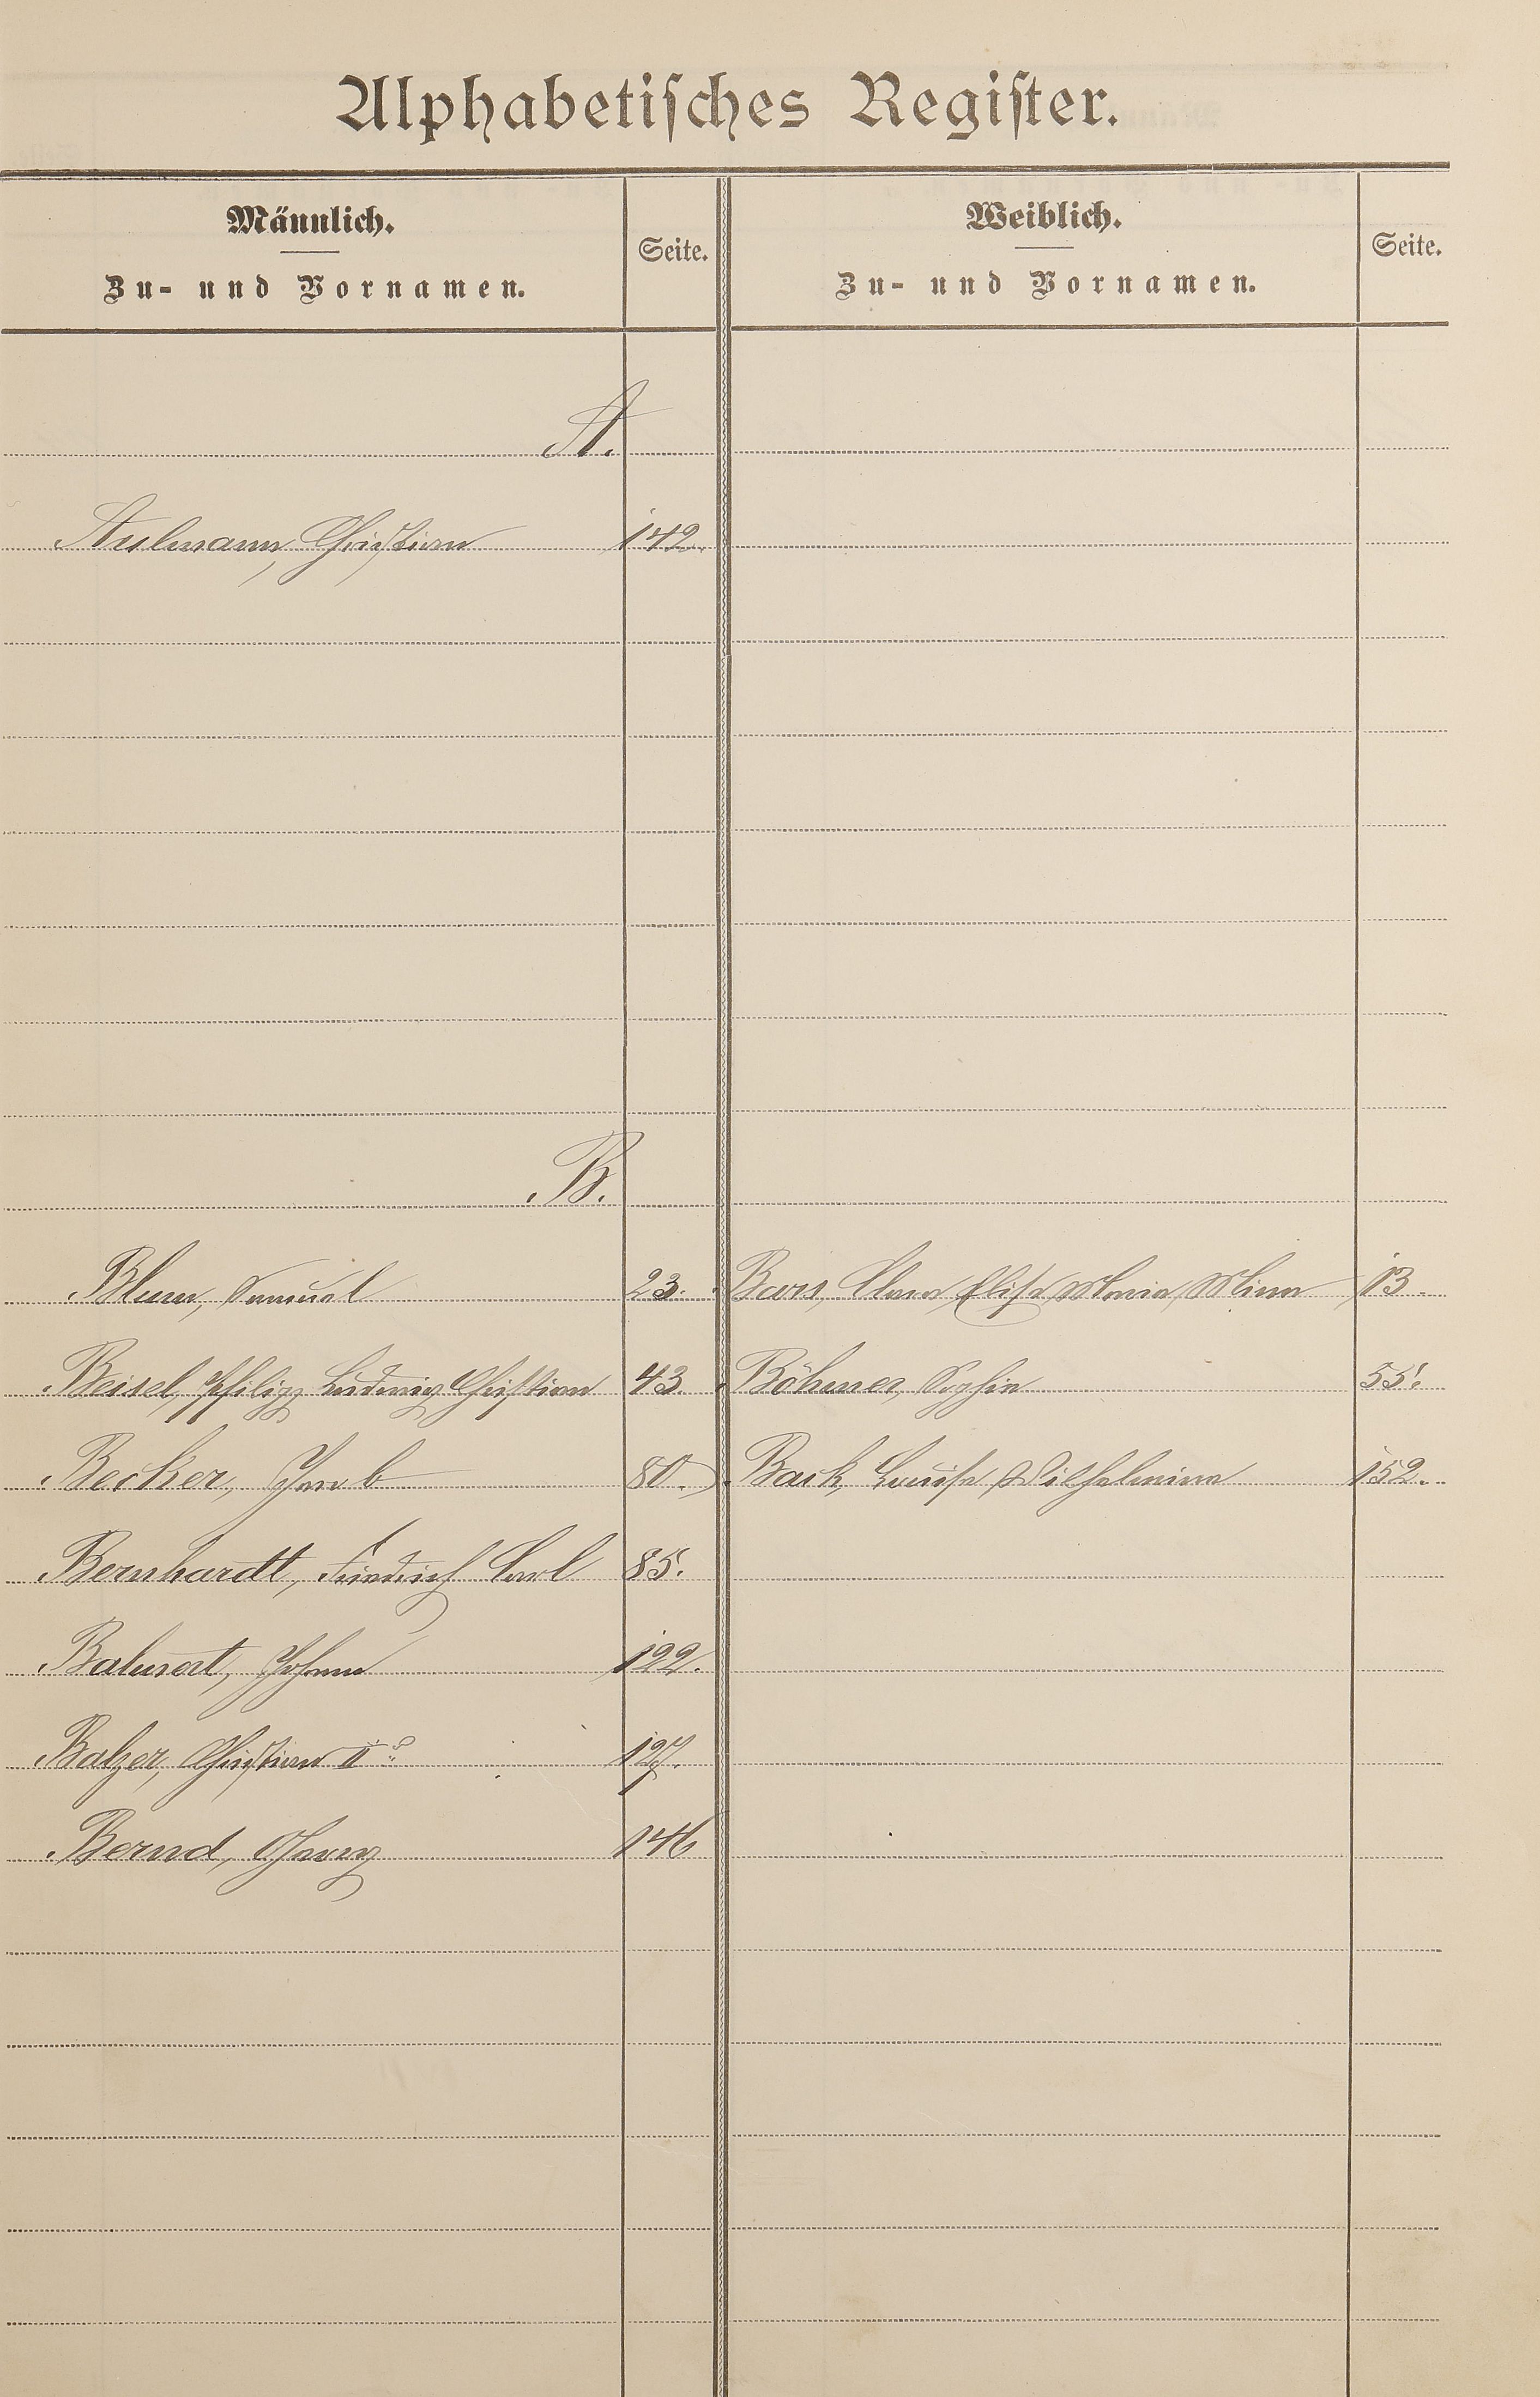 Alphabetisches Register.
Männlich. Weiblich.
Seite. Seite.
Zu- und Vornamen. Zu- und Vornamen.
A.
Aulmann, Christian 142.
B.
Blum, Samuel 23. Bars, Clara Elise Maria Minna 13.
Beisel, Philipp Ludwig Christian 43. Böhmer, Sophie 55.
Becker, Jacob 80. Back, Louise Wilhelmine 152.
Bernhardt, Friedrich Carl 85.
Johann 122.
Balzer, Christian II 127.
Bernd, Georg 146